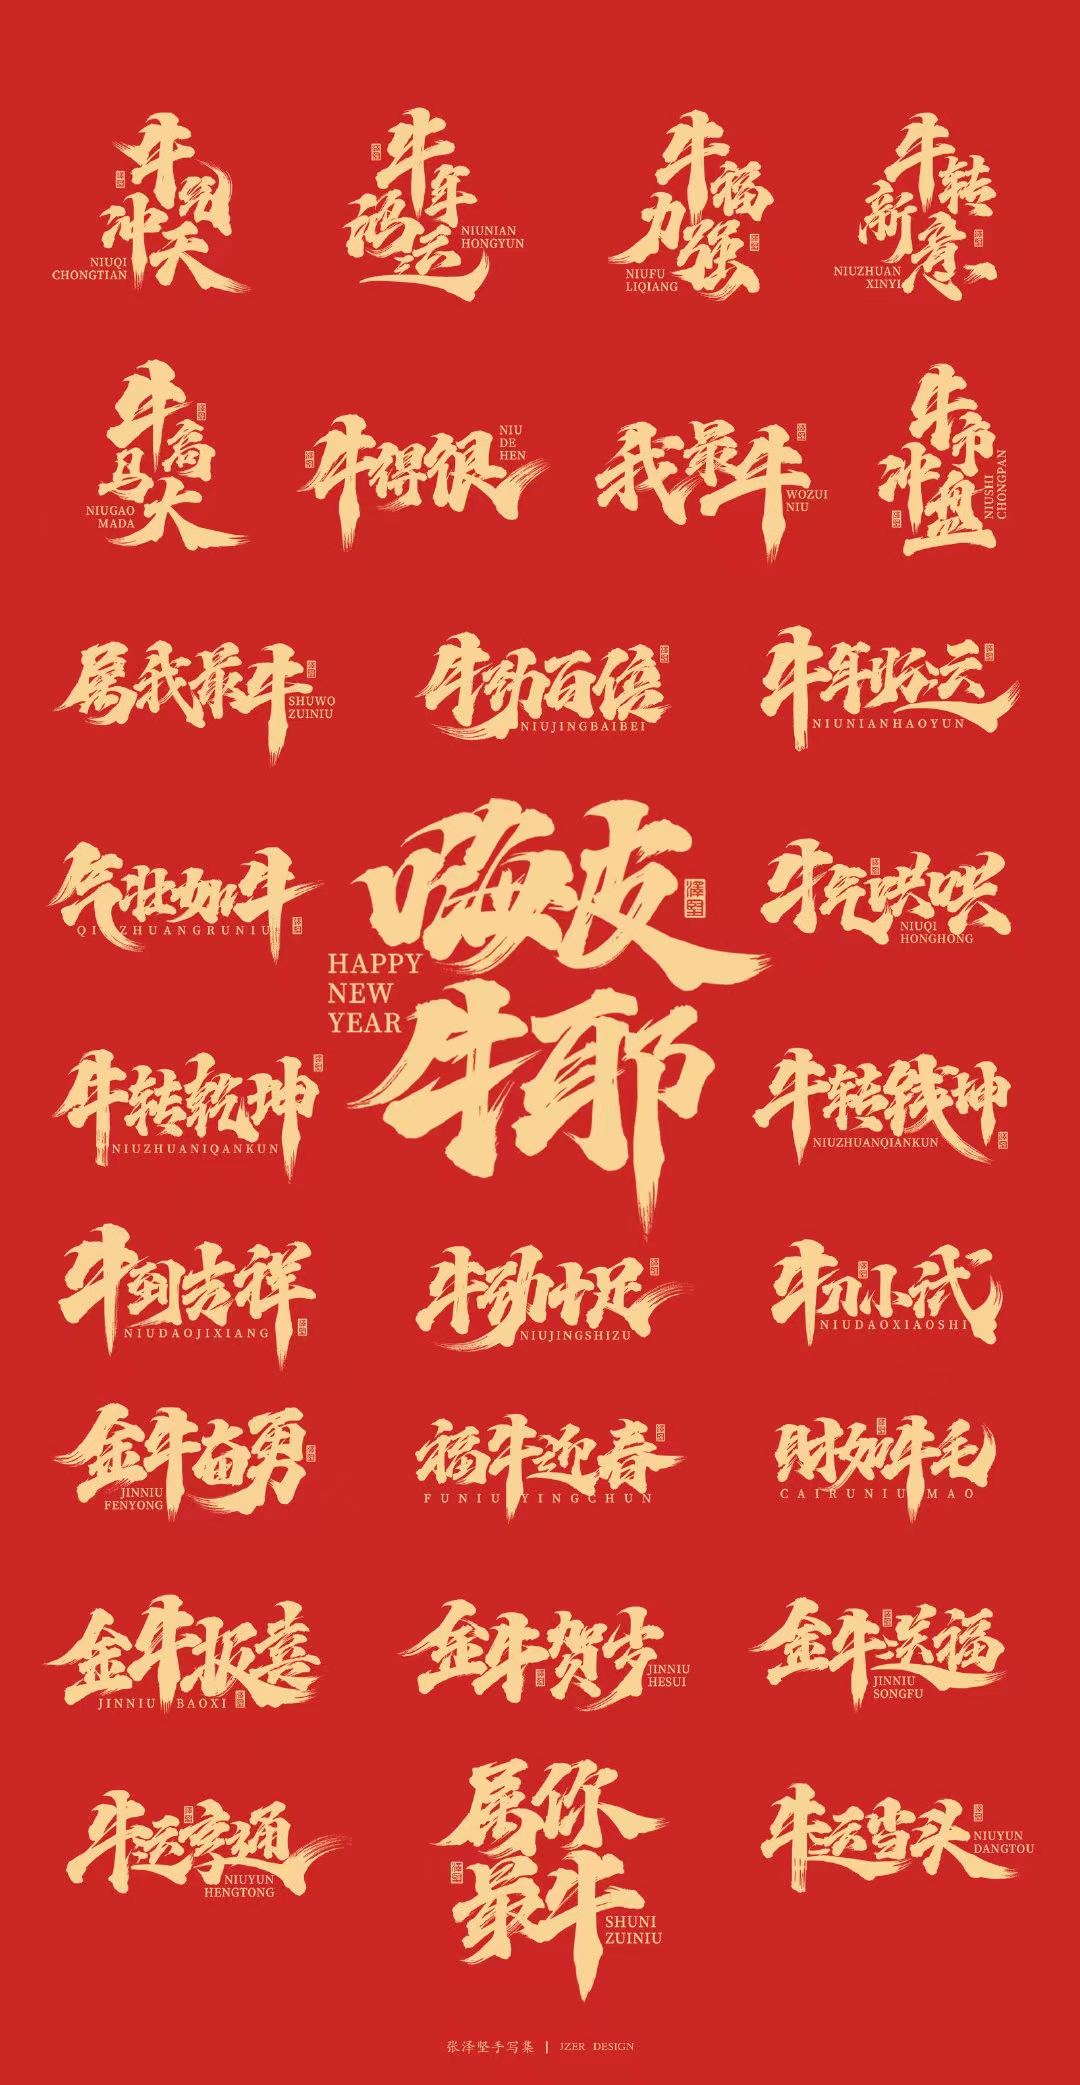 牛气冲天
NIUQI
CHONGTIAN
牛年鸿运
NIUNIAN
HONGYUN
牛福力强
NIUFU
LIQIANG
牛转新意
NIUZHUAN
XINYI
牛高马大
NIUGAO
MADA
牛得很
NIU
DE
HEN
我最牛
WOZUI
NIU
牛市冲盘
NIUSHI
CHONGPAN
属我最牛
SHUWO
ZUINIU
牛劲百倍
NIUJINGBAIBEI
牛年好运
NIUNIANHAOYUN
气壮如牛
QIZHUANGRUNIU
嗨皮
牛耶
澤堅
HAPPY
NEW
YEAR
牛气哄哄
NIUQI
HONGHONG
牛转乾坤
NIUZHUANIQANKUN
牛转钱坤
NIUZHUANQIANKUN
牛到吉祥
NIUDAOJIXIANG
牛劲十足
NIUJINGSHIZU
牛刀小试
NIUDAOXIAOSHI
金牛奋勇
JINNIU
FENYONG
福牛迎春
FUNIUYINGCHUN
财如牛毛
CAIRUNIUMAO
金牛报喜
JINNIU BAOXI
金牛贺岁
JINNIU
HESUI
金牛送福
JINNIU
SONGFU
牛运亨通
NIUYUN
HENGTONG
属你
最牛
SHUNI
ZUINIU
牛运当头
NIUYUN
DANGTOU
张泽坚手写集 | JZER DESIGN